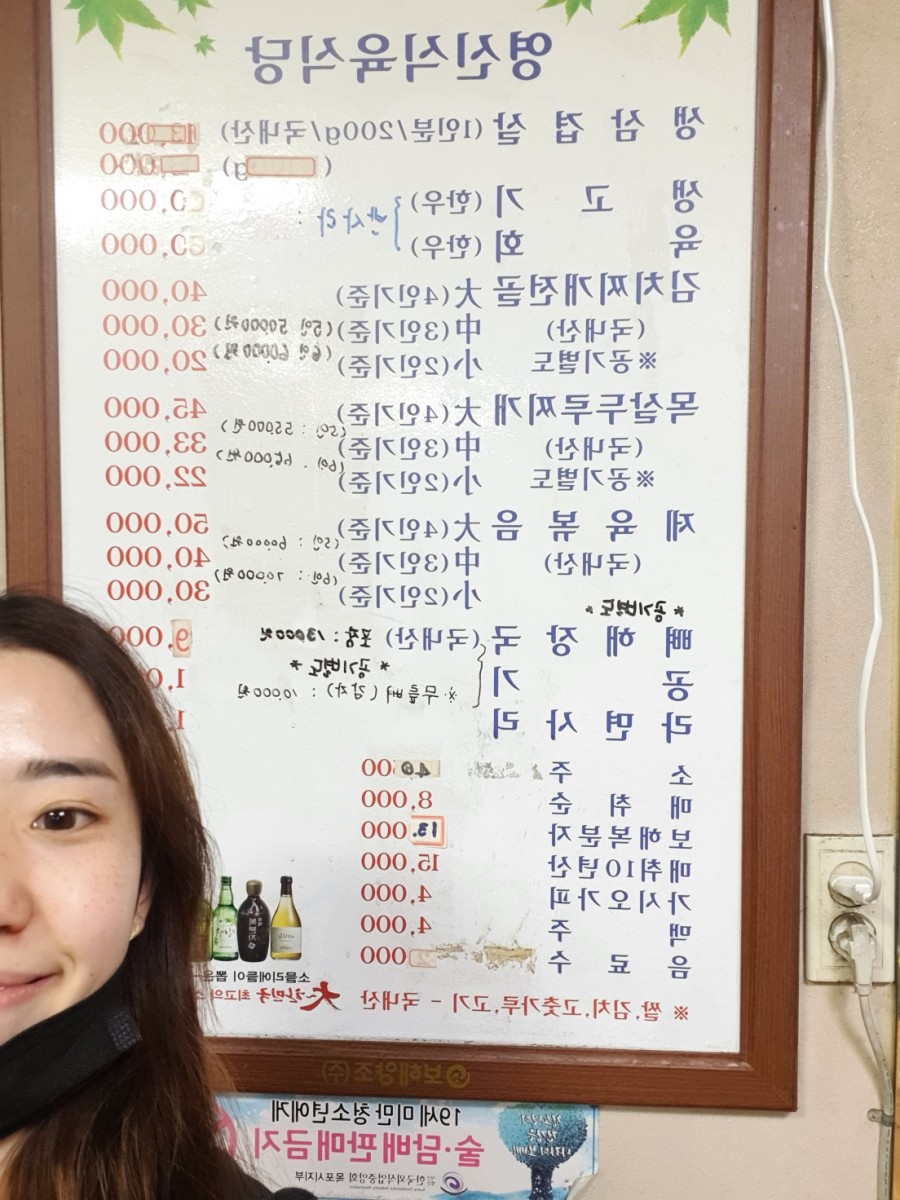 영신식육식당
생 삼 겹 살 (1인분/200g/국내산) 13,000
( g) 000
생 고 기 (한우) 0,000
육 회 (한우) 0,000
} 반사라 :
김치찌개전골 大(4인기준) 40,000
(국내산) 中(3인기준) (5인 50,000원) 30,000
※공기별도 小(2인기준) (6인 60,000원) 20,000
목살두루찌개 大(4인기준) 45,000
(국내산) 中(3인기준) (5인 : 55,000원) 33,000
※공기별도 小(2인기준) (6인 : 65,000원) 22,000
제 육 볶 음 大(4인기준) 50,000
(국내산) 中(3인기준) (5인 : 60,000원) 40,000
小(2인기준) (6인 : 70,000원) 30,000
*공기별도*
뼈 해 장 국 (국내산) 포장 : 13,000원 9,000
공 기 *공기별도* 1,0
※무릎뼈(감자) : 10,000원
라 면 사 리 1
소 주 00
매 취 순 8,000
보해복분자 13.000
매취10년산 15,000
가시오가피 4,000
맥 주 4,000
음 료 수 000
※ 쌀,김치,고춧가루,고기 - 국내산
소믈리에들이 뽑은
大한민국 최고의
보해양조(주)
19세 미만 청소년에게
술·담배 판매금지
한국외식업중앙회 목포시지부